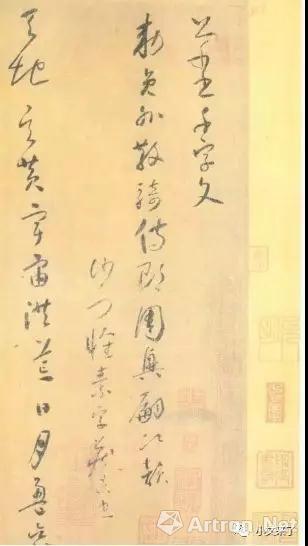 千字文
敕員外散騎侍郎周興嗣次韻
沙門懷素字藏真書
天地玄黃宇宙洪荒日月盈昃
Artron.Net